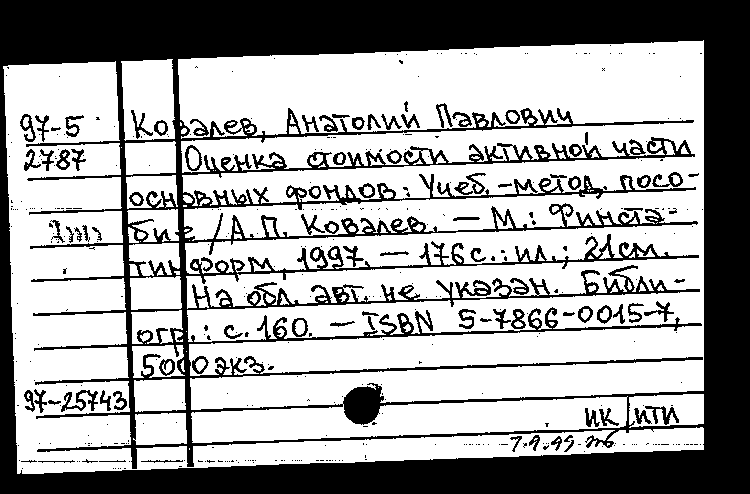 97-5 Ковалев, Анатолий Павлович
2787 Оценка стоимости активной части
основных фондов: Учеб.-метод. посо-
бие / А.П. Ковалев. — М.: Финста-
тинформ, 1997. — 176 с.: ил.; 21 см.
На обл. авт. не указан. Библи-
огр.: с. 160. — ISBN 5-7866-0015-7,
5000 экз.
97-25743
ИК/ИТИ
7.9.99